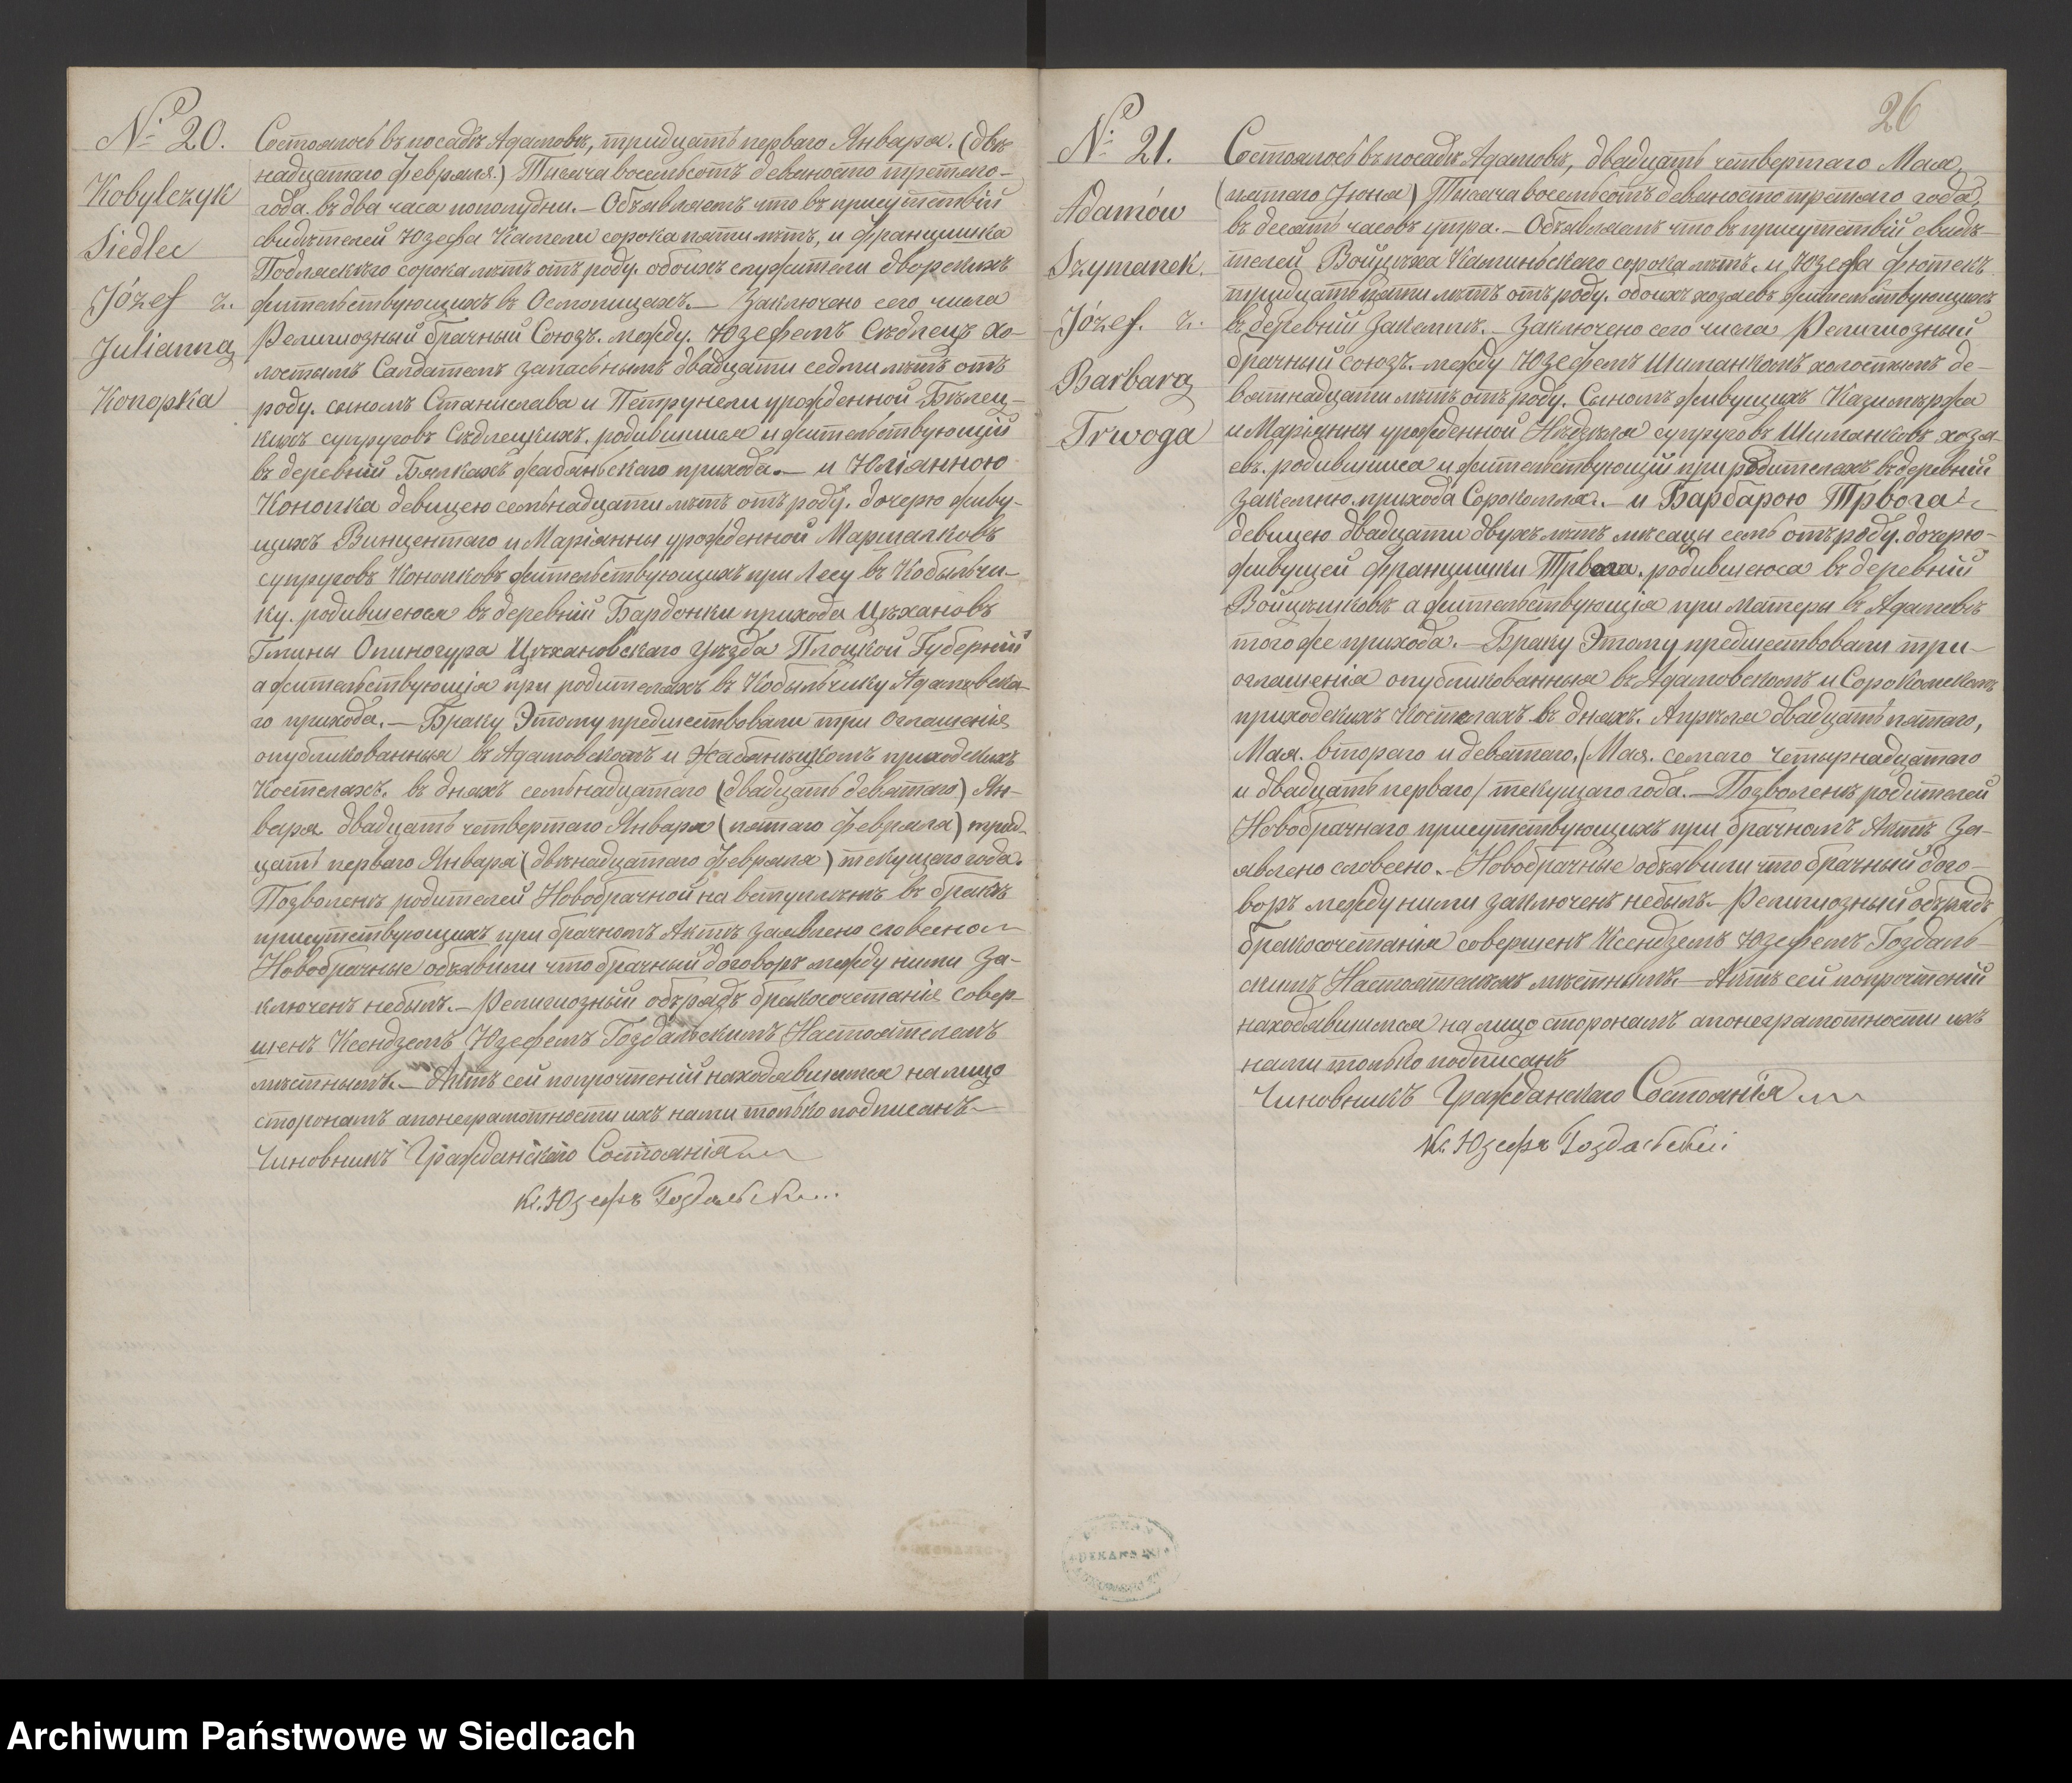 № 20.
Kobylczyk
Siedlec
Józef z.
Julianną
Konopka
Состоялось въ посадѣ Адамовѣ, тридцать перваго Января. (двѣ
надцатаго Февраля.) Тысяча восемьсотъ девяносто третяго
года въ два часа пополудни. – Объявляемъ что въ присутствій
свидѣтелей Юзефа Камели сорока пяти лѣтъ, и Францишка
Подляскѣго сорока лѣтъ отъ роду. обоихъ служители дворскихъ
жительствующихъ въ Осмолицахъ. – Заключено сего числа
Религіозный брачный Союзъ. между. Юзефемъ Сѣдлецъ хо-
лостымъ Салдатемъ запаснымъ двадцати седми лѣтъ отъ
роду. сыномъ Станислава и Петрунели урожденной Бѣлец-
кихъ супруговъ Сѣдлецкихъ. родившимся и жительствующій
въ деревній Бялкахъ жабяньскаго прихода. – и Юліянною
Конопка девицею семьнадцати лѣтъ отъ роду. дочерю живу-
щихъ Винцентаго и Маріянны урожденной Маршалковъ
супруговъ Конопковъ жительствующихъ при Лесу въ Кобыльчи-
ку. родившеюся въ деревній Бардонки прихода Цѣхановъ
Гмины Опиногура Цѣхановскаго Уѣзда Плоцкой Губерній
а жительствующія при родителахъ въ Кобыльчику Адамовска-
го прихода. – Браку Этому предшествовали три Оглашенія
опубликованныя въ Адамовскомъ и Жабяньцкомъ приходскихъ
Костелахъ. въ дняхъ семьнадцатаго (двадцать девятаго) Ян-
варя. двадцать четвертаго Января (пятаго Февраля) трид-
цать перваго Января (двѣнадцатаго Февраля) текущаго года.
Позволенъ родителей Новобрачной на вступлѣнъ въ бракъ
присутствующихъ при брачномъ Актѣ заявлено словесно
Новобрачные объявили что брачный договоръ между ними За-
ключенъ небылъ. – Религіозный обърядъ бракосочетанія совер-
шенъ Ксендземъ Юзефемъ Гоздальскимъ Настоятелемъ
мѣстнымъ. – Актъ сей попрочтеній находявшимся на лицо
сторонамъ апонеграмотности ихъ нами только подписанъ –
Чиновникъ Гражданскаго Состоянія
Кс. Юзефъ Гоздальскі
26
№ 21.
Adamów
Szymanek
Józef. z.
Barbarą
Trwoga
Состоялось въ посадѣ Адамовѣ, двадцать четвертаго Мая,
(пятаго Іюна) Тысяча восемьсотъ девяносто третяго года,
въ десять часовъ утра. – Объявляемъ что въ присутствій свидѣ-
телей Войцѣха Каминьскаго сорока лѣтъ. и Юзефа Фютекъ
тридцать пяти лѣтъ отъ роду. обоихъ хозяевъ жительствующихъ
въ деревній Закемпѣ. – Заключено сего числа Религіозный
брачный союзъ. между Юзефемъ Шиманкомъ холостымъ де-
вятнадцати лѣтъ отъ роду. Сыномъ живущихъ Казимѣржа
и Маріянны урожденной Нѣдзѣля супруговъ Шиманковъ хозя-
евъ. родившимся и жительствующій при родителахъ въ деревній
Закемпю. прихода Сорокомля. – и Барбарою Трвога
девицею двадцати двухъ лѣтъ мѣсацы семь отъ роду. дочерю
живущей Францишки Трвога. родившеюся въ деревній
Войцѣшковѣ а жительствующія при Матеры въ Адамовѣ
того же прихода. – Браку Этому предшествовали три
оглашенія опубликованныя въ Адамовскомъ и Сорокомскомъ
приходскихъ Костелахъ въ дняхъ. Апрѣля двадцать пятаго,
Мая. втораго и девятаго, (Мая. семаго четырнадцатаго
и двадцать перваго) текущаго года. – Позволенъ родителей
Новобрачнаго присутствующихъ при брачномъ Актѣ за-
явлено словесно. – Новобрачные объявили что брачный дого-
воръ между ними заключенъ небылъ. – Религіозный обърядъ
бракосочетанія совершенъ Ксендземъ Юзефемъ Гоздаль-
скимъ Настоятелемъ мѣстнымъ. – Актъ сей попрочтеній
находявшимся на лицо сторонамъ апонеграмотности ихъ
нами только подписанъ
Чиновникъ Гражданскаго Состоянія
Кс. Юзефъ Гоздальскій
Archiwum Państwowe w Siedlcach